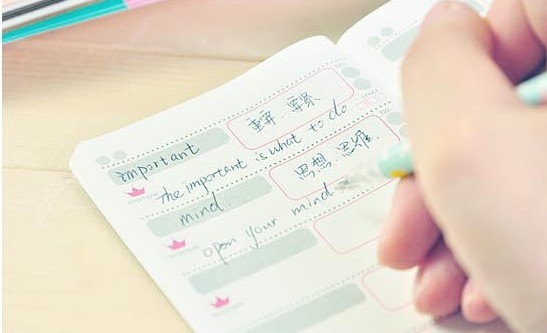 important
重要、要紧
the important is what to do
mind.
思想、思维
open your mind